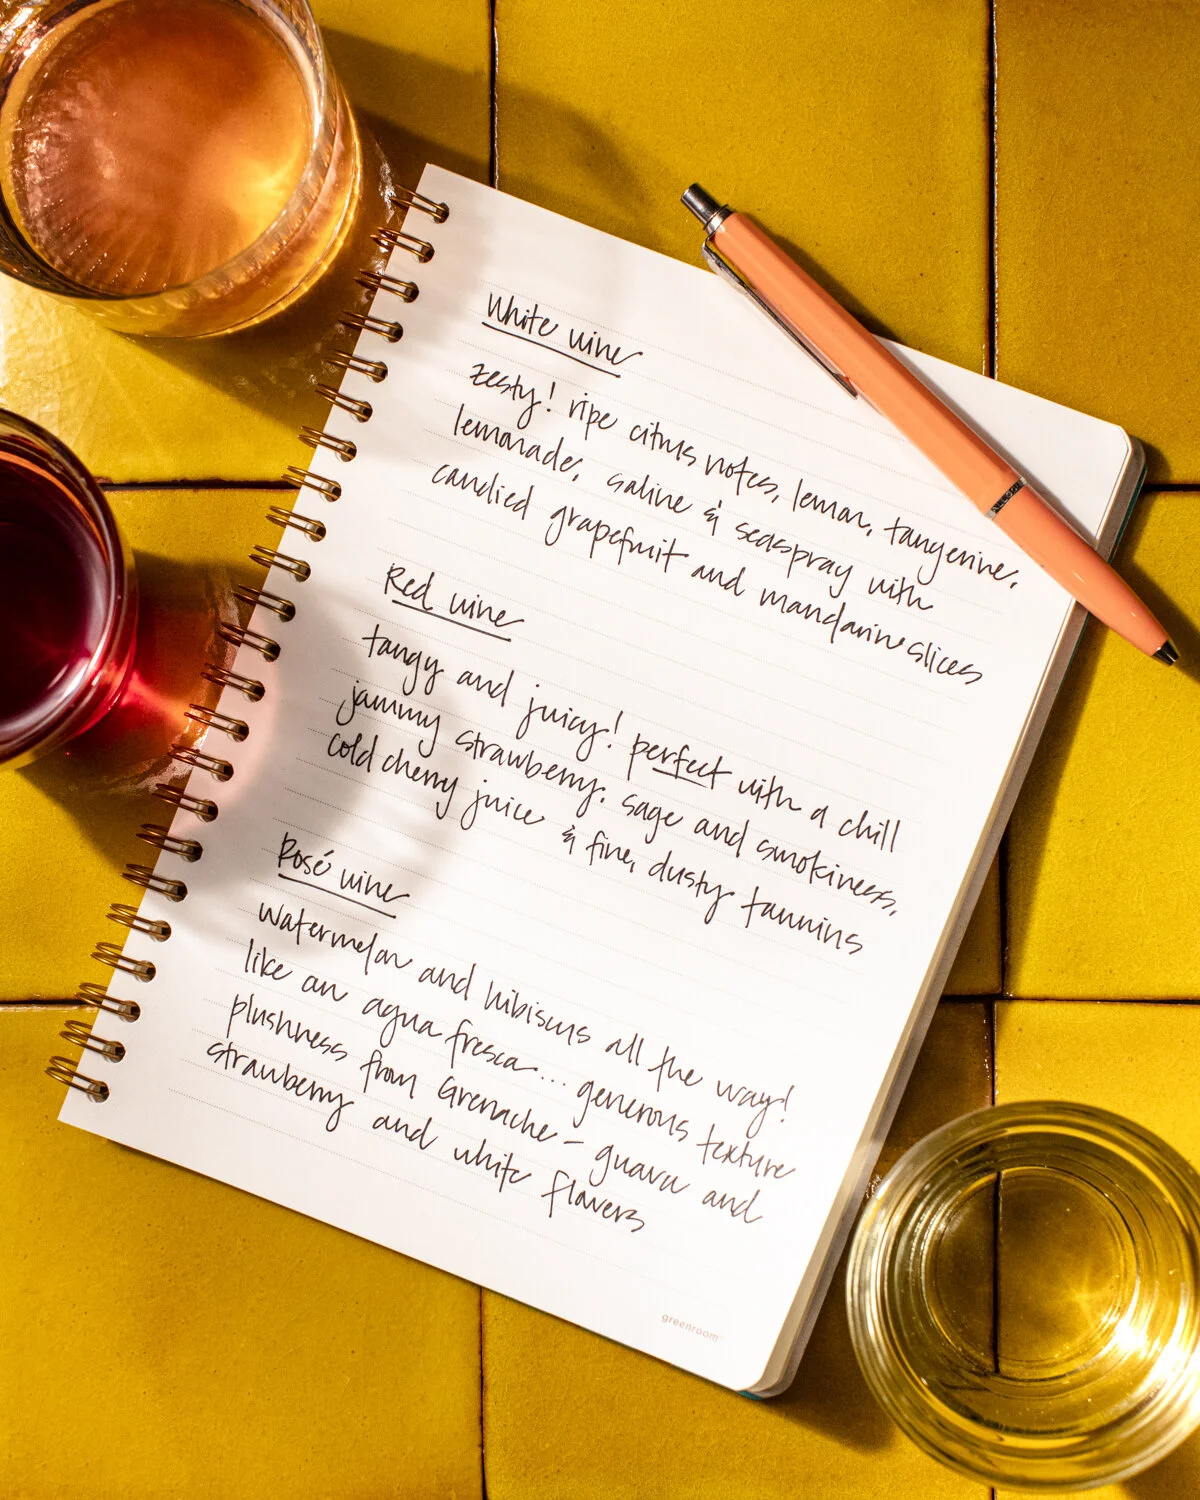 White wine
zesty! ripe citrus notes, lemon, tangerine,
lemonade, saline & seaspray with
candied grapefruit and mandarin slices
Red wine
tangy and juicy! perfect with a chill
jammy strawberry. sage and smokiness,
cold cherry juice & fine, dusty tannins
Rosé wine
watermelon and hibiscus all the way!
like an agua fresca... generous texture
plushness from Grenache - guava and
strawberry and white flavers
greenroom